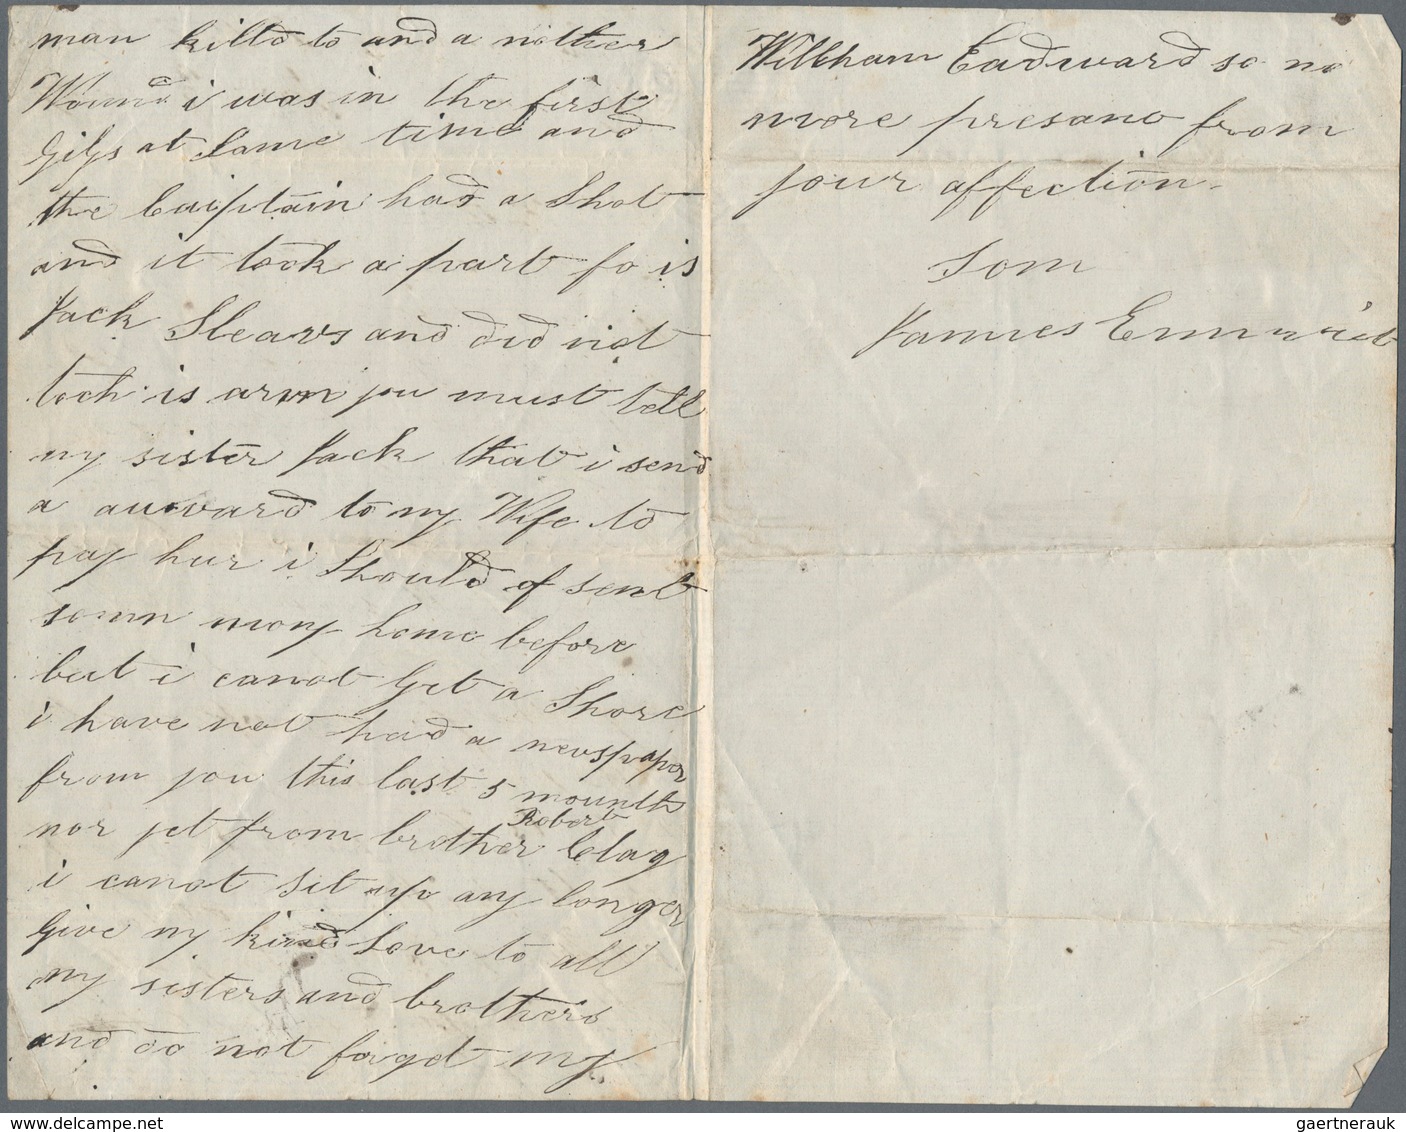 man killd to and a nother
Wound i was in the first
Gigs at Same time and
the Caiptain had a Shot
and it took a part fo is
Jack Sleavs and did not
toch is arm you must tell
my sister Jack that i send
a auward to my Wife to
pay hur i Should of sent
somn mony home before
but i canot Get a Shore
i have not had a newspaper
from you this last 5 mounths
Robert
nor yet from brother Clag
i canot sit up any longer
Give my kind Love to all
my sisters and brothers
and do not forget my
Willham Eadward so no
more presano from
your affection
Son
James
gaertnerauk